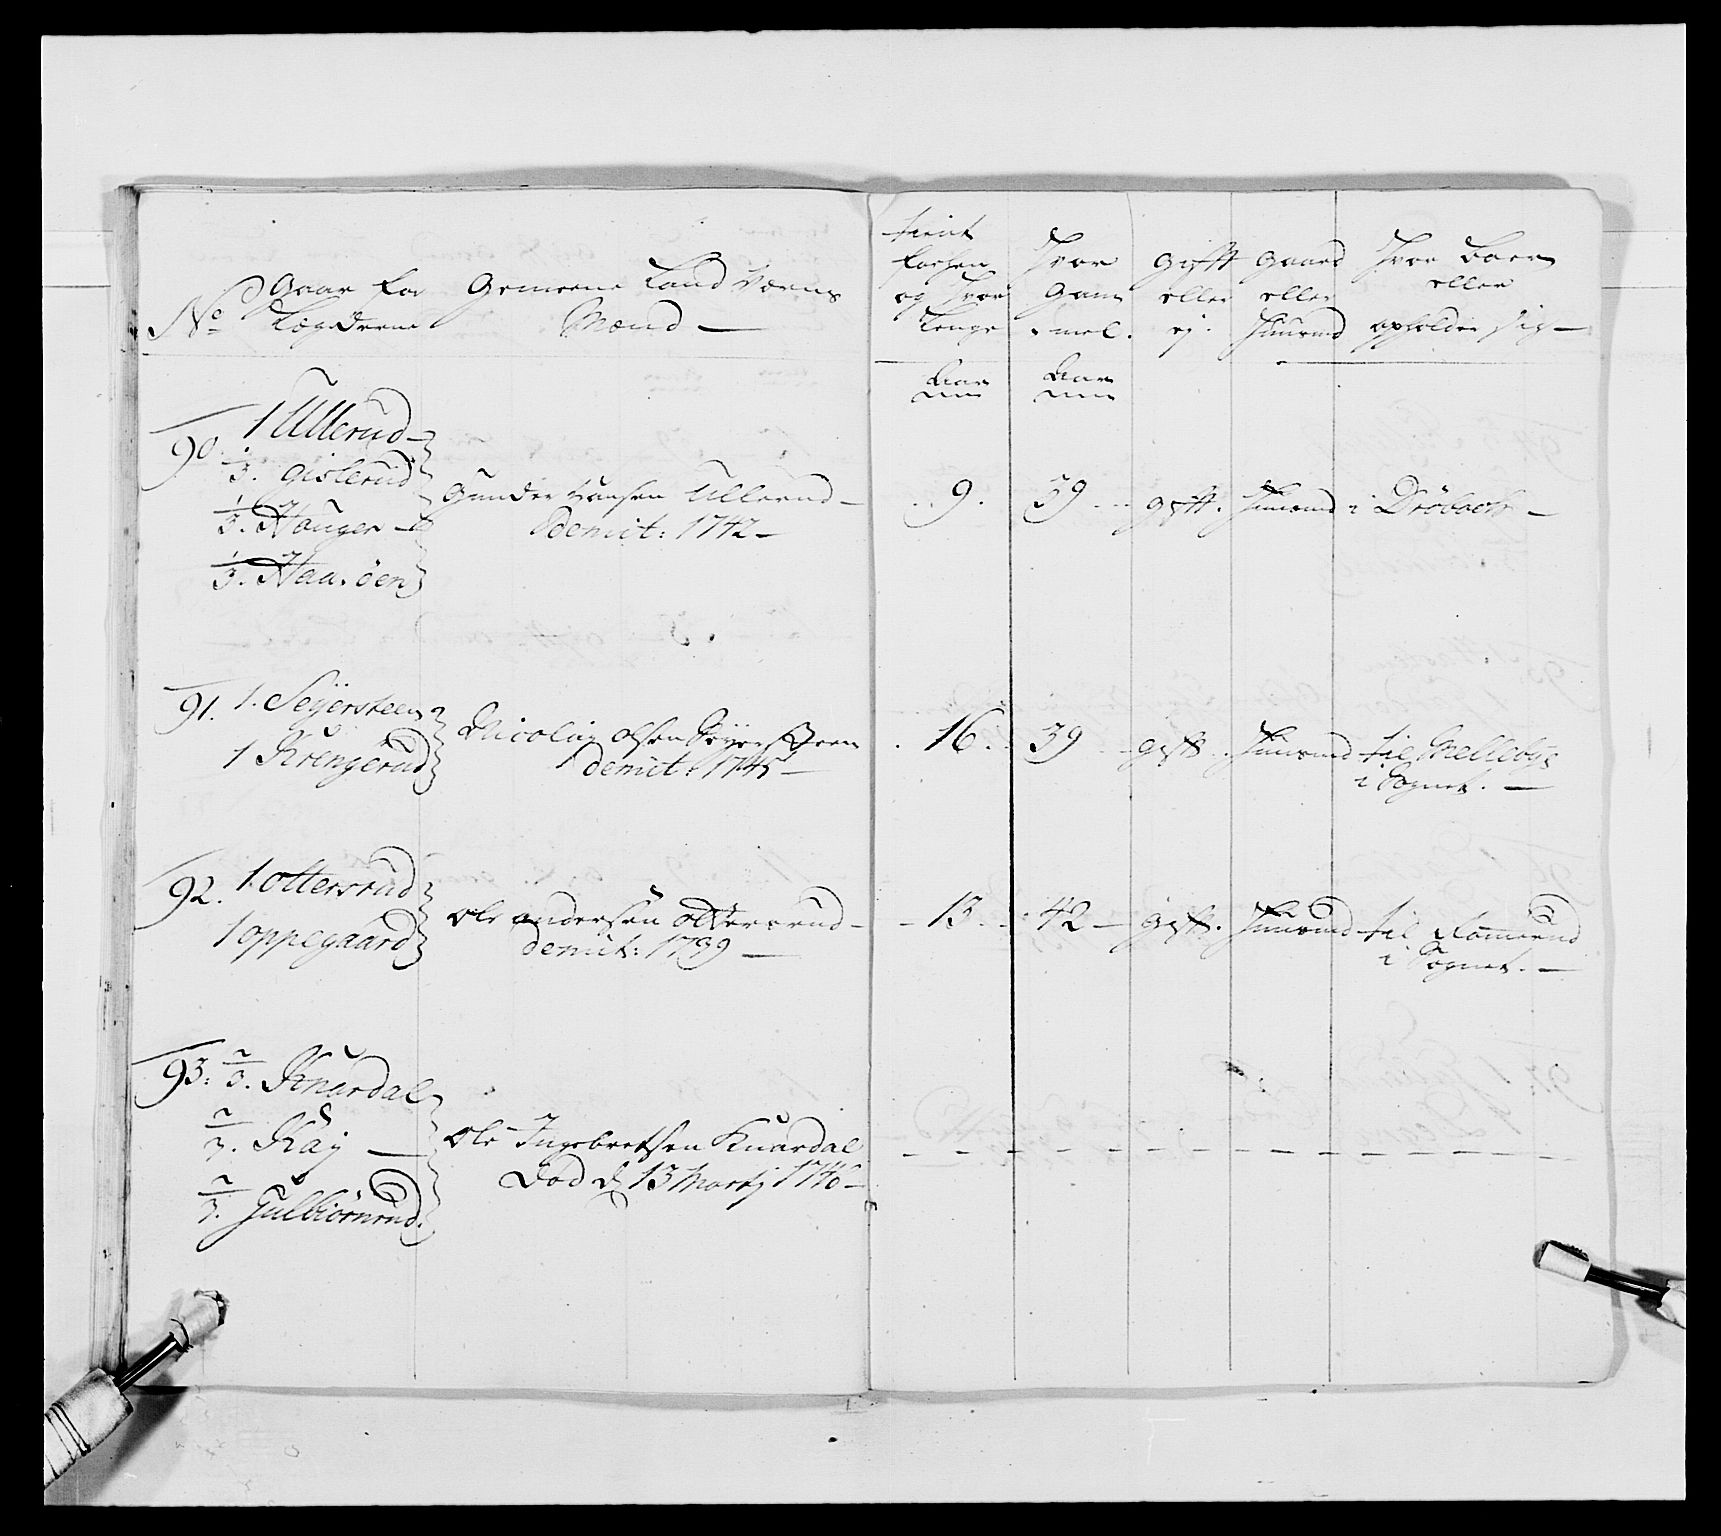 No Gaar for Lægderne
Gemeene Land Værns Mænd —
tient forhen og hvor lenge
Hvor Gam mel.
Gift eller ej.
Gaard eller Huusmd
Hvor Boer eller opholder sig —
Aar
Aar
90. 1 Ullerud —
1/3. Gislerud
1/3. Hauger —
1/3. Haa. öen
Gunder Hansen Ullerud —
demit: 1742 —
9. 39 gift. Huusmd i Dröbach —
91. 1. Seÿersteen
1 Krengerud
Nicolaÿ Olsen Seÿersteen
demit: 1745 —
16. 39 gift. Huusmd til Mellebye
i Sognet. —
92. 1. Ottersrud
1 Oppegaard
Ole Andersön Ottersrud —
demit: 1739 —
13. 42 — gift. Huusmd til Rommerud
i Sognet. —
93. 2/3. Knardal
2/3. Kaÿ —
2/3. Gulbiörnrud.
Ole Ingebretsen Knardal
Död d. 13 Martj 1746 —